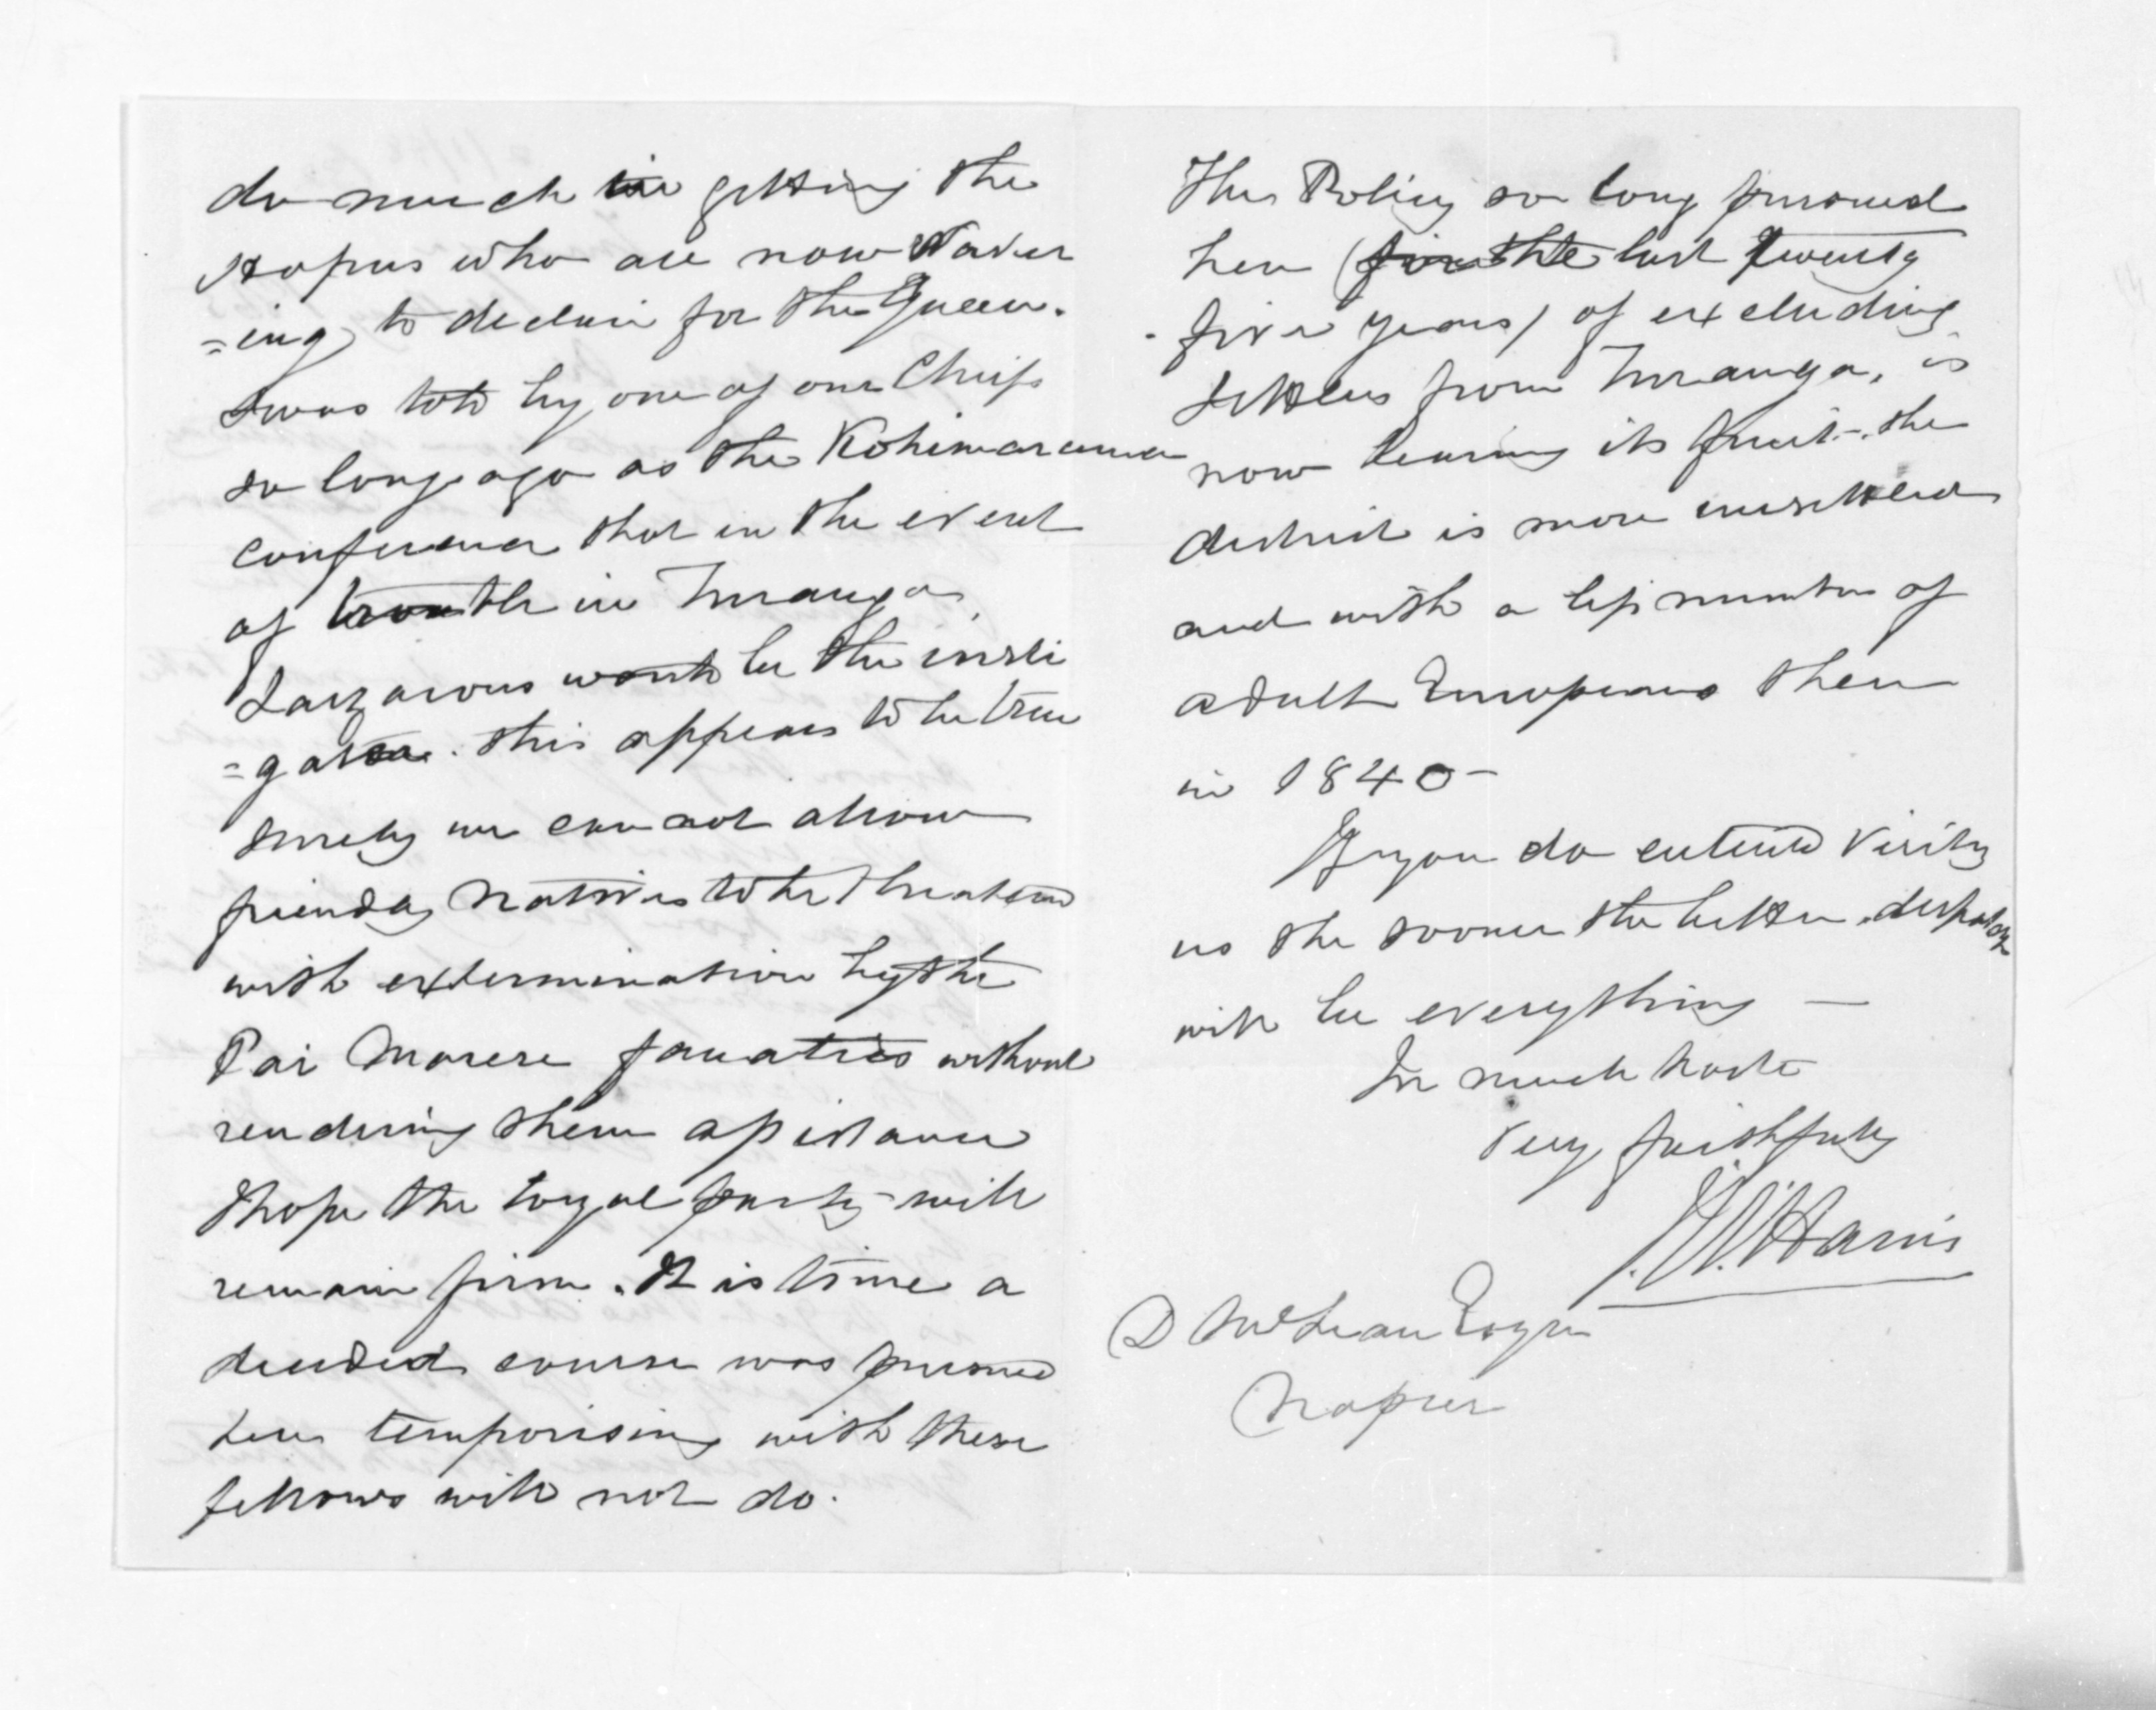 do much in getting the
Hapus who are now Waver
=ing to declare for the Queen.
I was told by one of our Chiefs
so long ago as the Kohimarama
conference that in the event
of trouble in Turanga
Lazarous would be the insti
=gator. This appears to be true
surely we can not allow
friendly Natives to be threatened
with extermination by the
Pai Marere fanatics without
rendering them assistance
I hope the loyal party will
remain firm. It is time a
decided course was pursued
here temporising with these
fellows will not do.
The Policy so long pursued
here (for the last Twenty
five years) of excluding
Settlers from Turanga, is
now bearing its fruit -. the
district is more unsettled
and with a less number of
adult Europeans then
in 1840 -
If you do entend visiting
us the sooner the better. despatch
will be everything -
In much haste
Very faithfully
J. W. Harris
D McLean Esqre
Napier